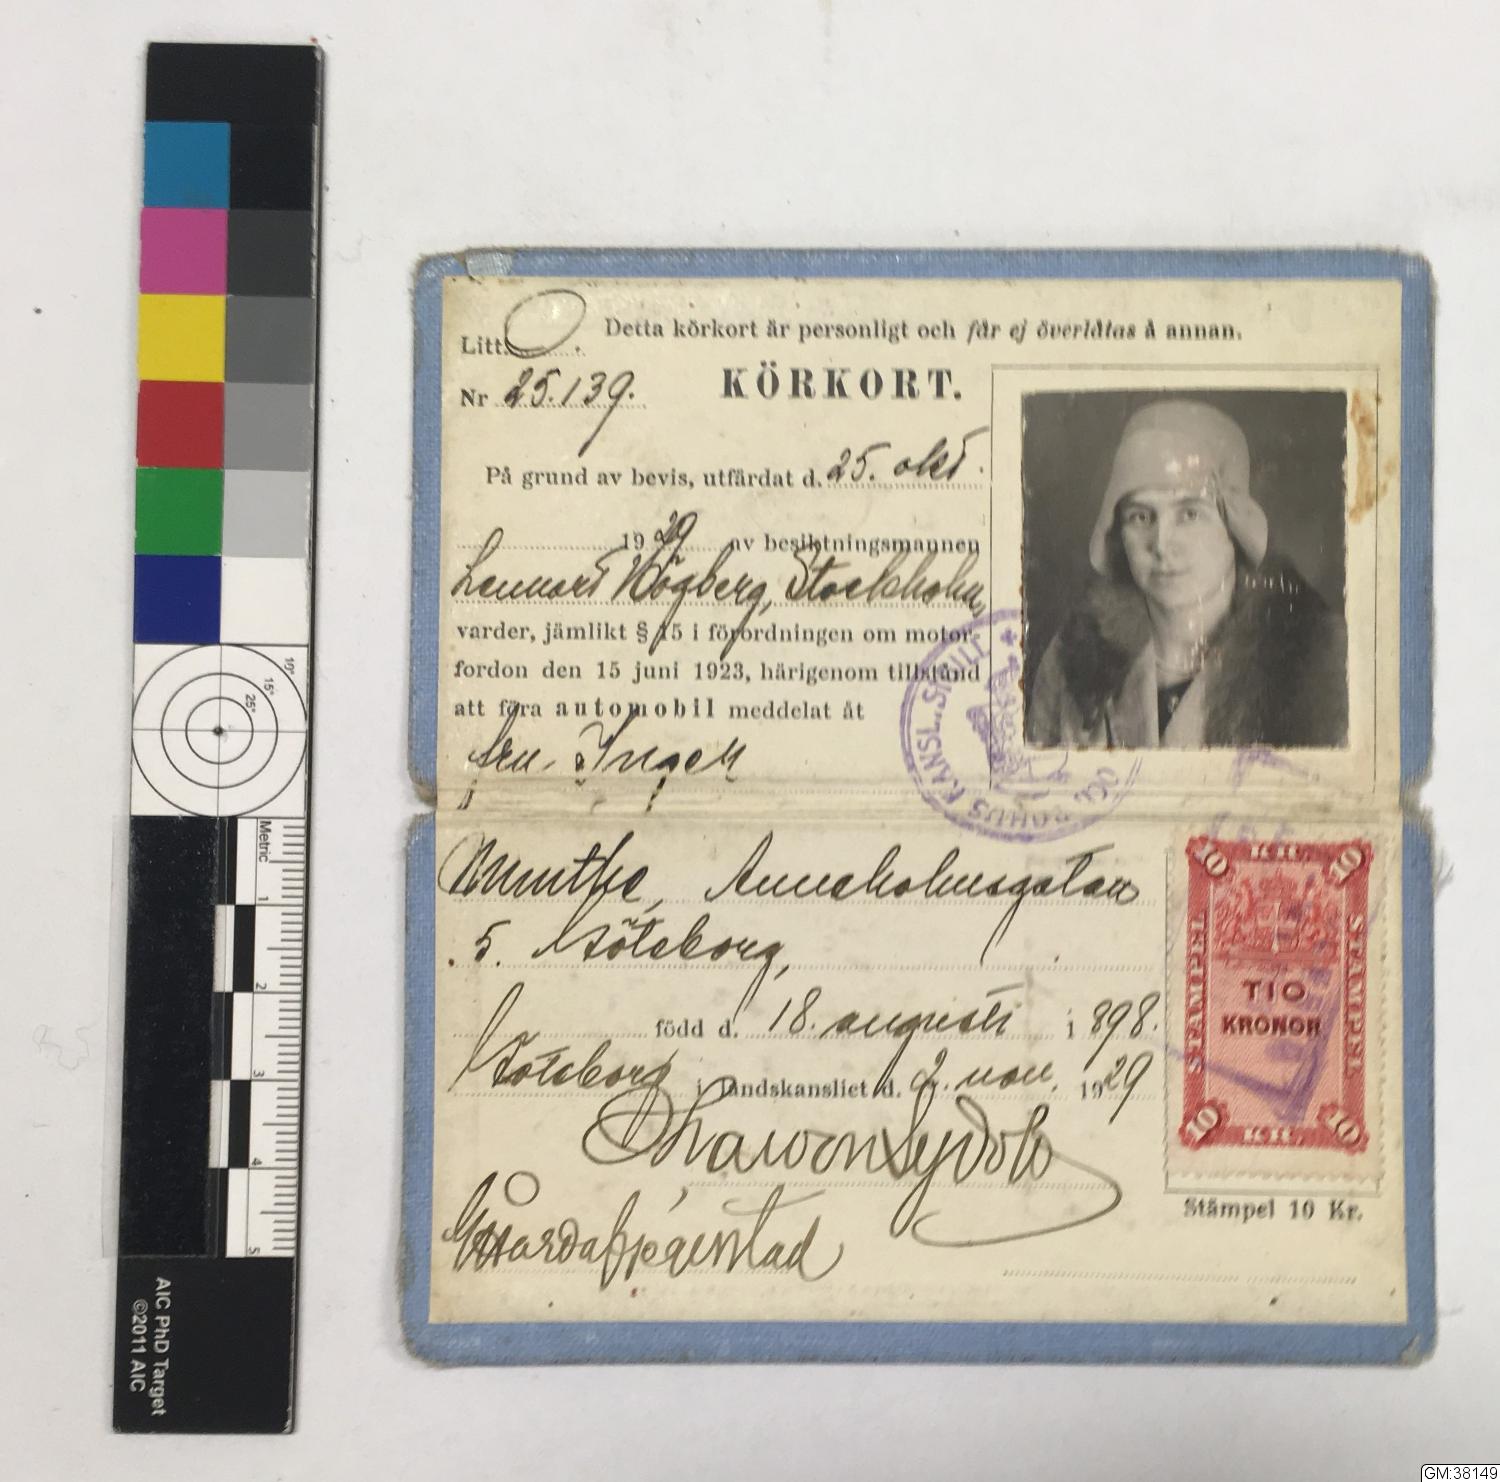 Litt. O. Detta körkort är personligt och får ej överlåtas å annan.
Nr 25.139. KÖRKORT.
På grund av bevis, utfärdat d. 25. okt.
1929 av besiktningsmannen
Lennart Högberg, Stockholm,
varder, jämlikt § 15 i förordningen om motor-
fordon den 15 juni 1923, härigenom tillstånd
att föra automobil meddelat åt
fru Inger
Munthe, Anneholmsgatan
5. Göteborg,
född d. 18. augusti 1898.
Göteborg i landskansliet d. 2. nov. 1929
Stämpel 10 Kr.
10 10
STÄMPEL STÄMPEL
TIO
KRONOR
10 10
BOHUS KANSL.
10°
15°
25°
Metric
1
2
3
4
5
AIC PhD Target
©2011 AIC
GM:38149